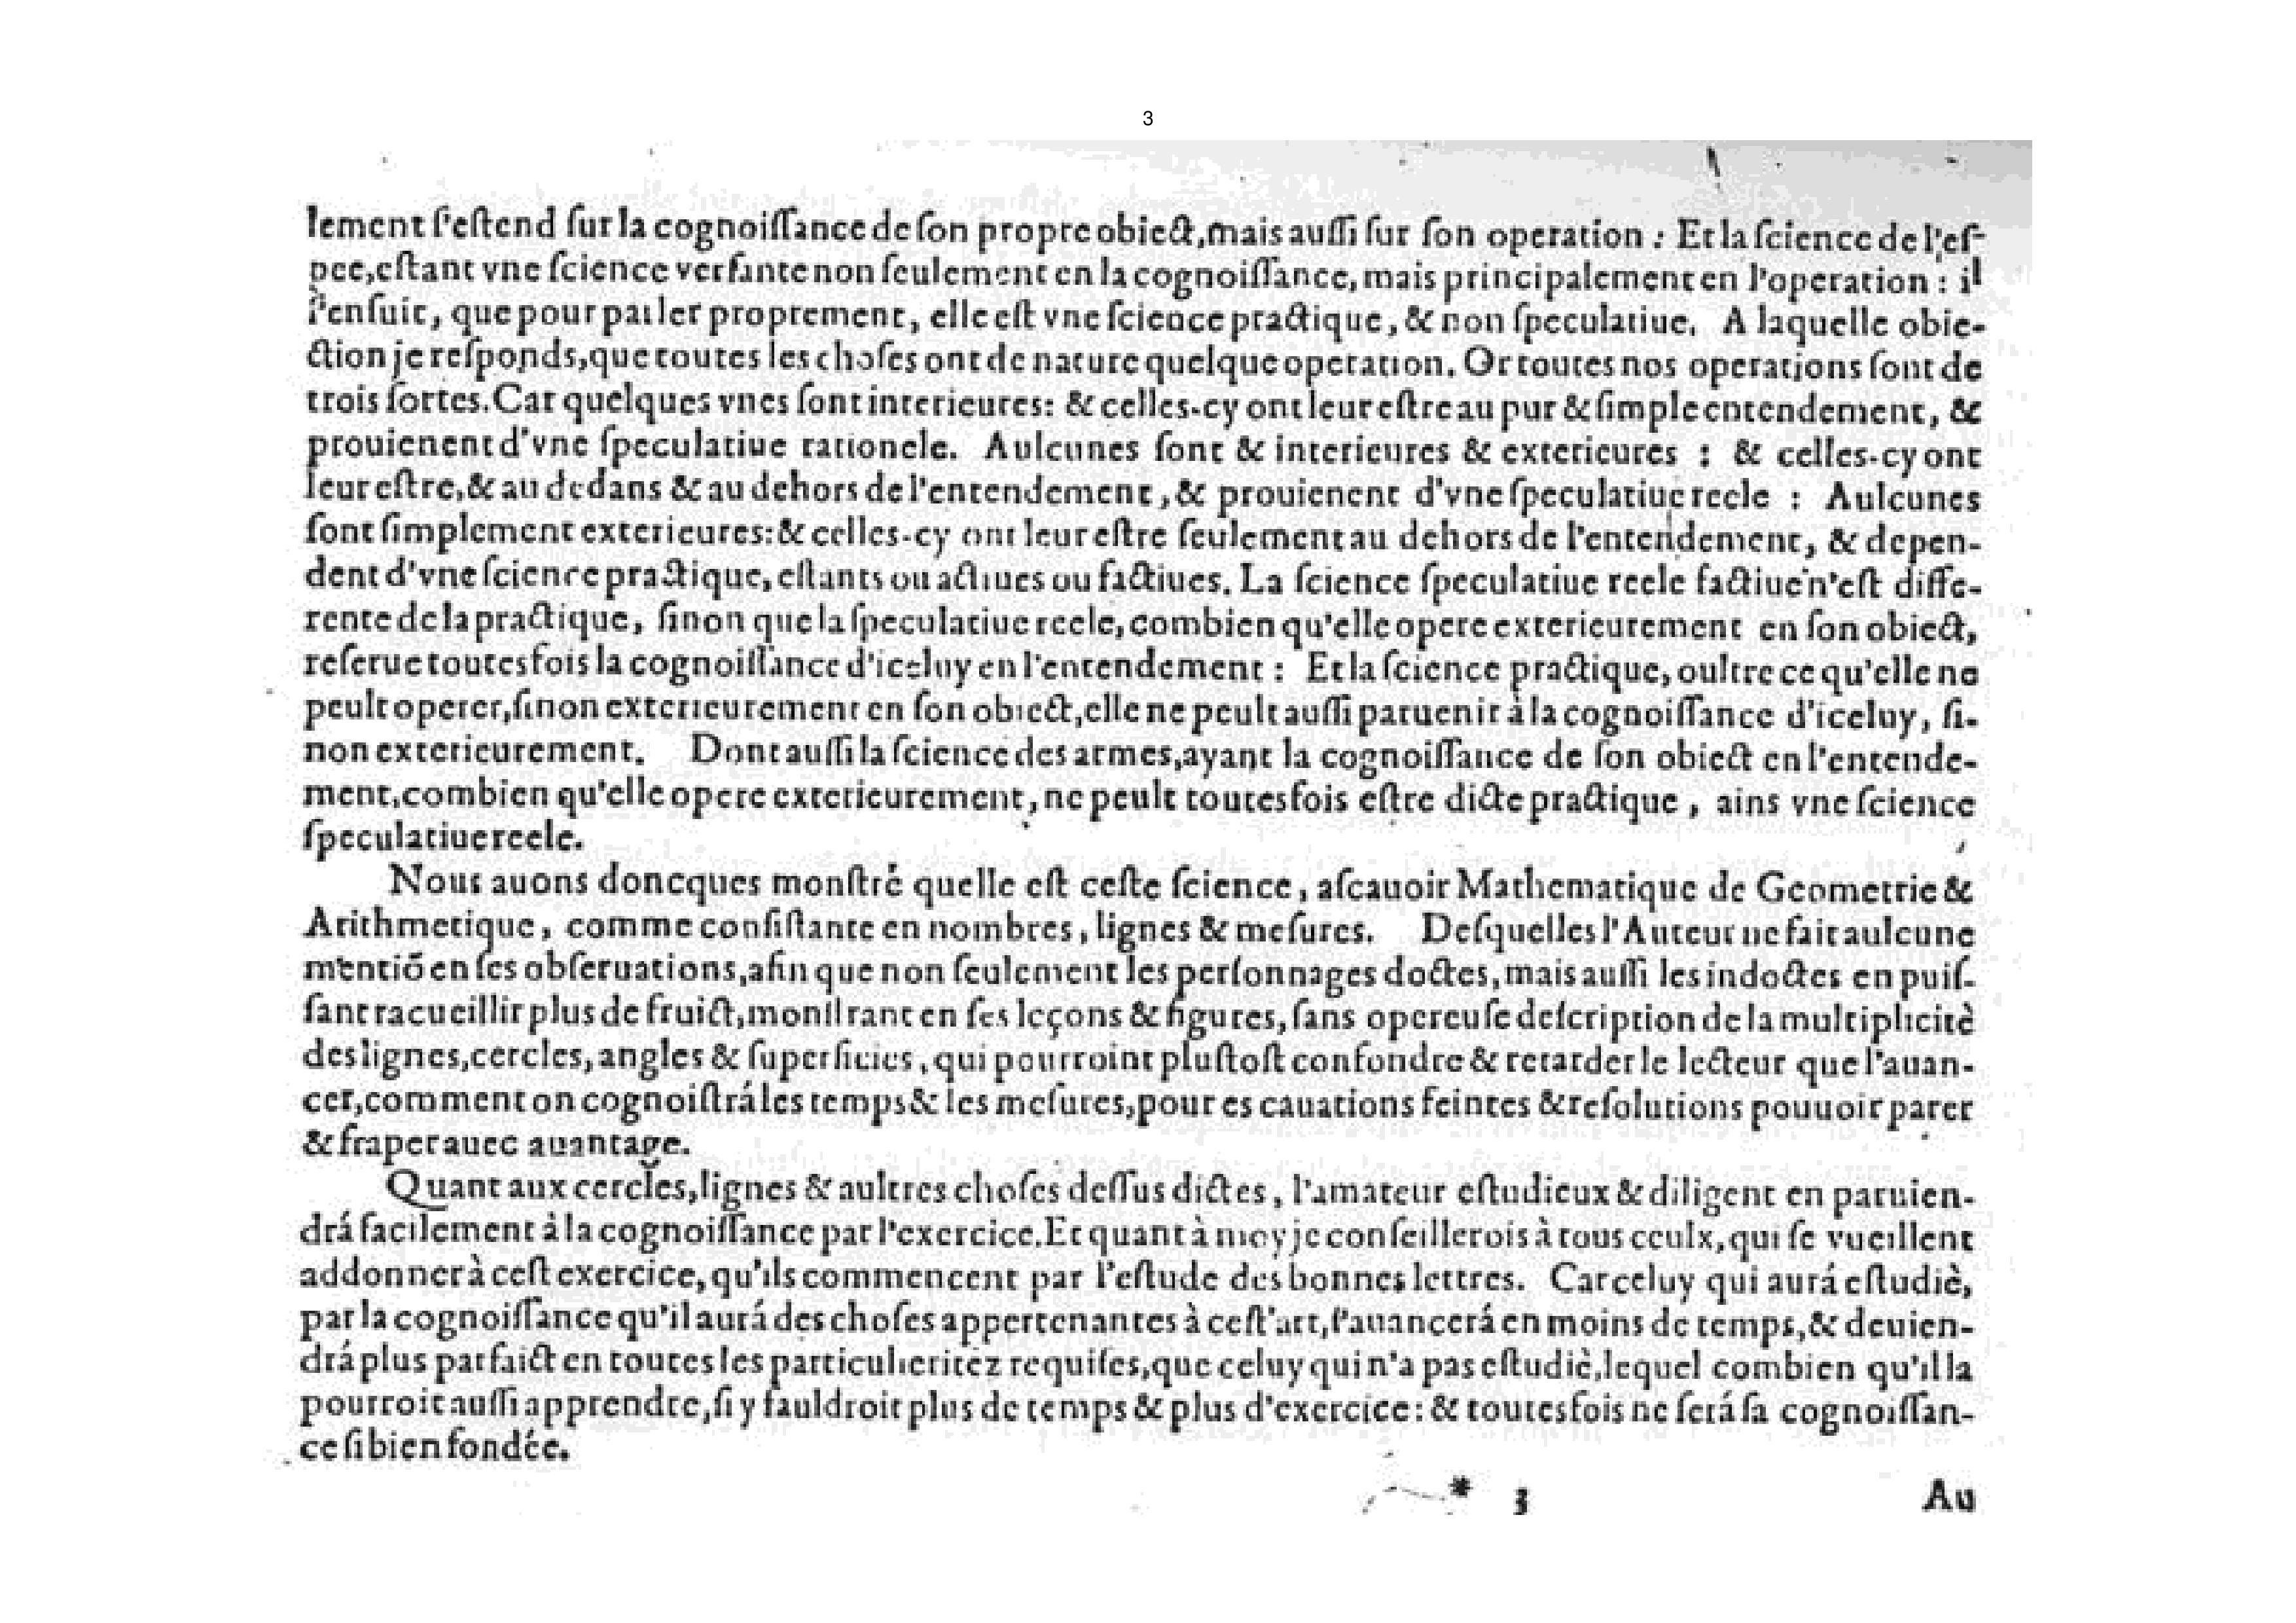 3
lement ſ'eſtend ſur la cognoiſſance de ſon propre obiect, mais auſſi ſur ſon operation : Et la ſcience de l'eſ-
pee, eſtant vne ſcience verſante non ſeulement en la cognoiſſance, mais principalement en l'operation : il
ſ'enſuit, que pour parler proprement, elle eſt vne ſcience practique, & non ſpeculatiue. A laquelle obie-
ction je reſponds, que toutes les choſes ont de nature quelque operation. Or toutes nos operations ſont de
trois ſortes. Car quelques vnes ſont interieures: & celles-cy ont leur eſtre au pur & ſimple entendement, &
prouienent d'vne ſpeculatiue rationele. Aulcunes ſont & interieures & exterieures : & celles-cy ont
leur eſtre, & au dedans & au dehors de l'entendement, & prouienent d'vne ſpeculatiue reele : Aulcunes
ſont ſimplement exterieures: & celles-cy ont leur eſtre ſeulement au dehors de l'entendement, & depen-
dent d'vne ſcience practique, eſtants ou actiues ou factiues. La ſcience ſpeculatiue reele factiue n'eſt diffe-
rente de la practique, ſinon que la ſpeculatiue reele, combien qu'elle opere exterieurement en ſon obiect,
reſerue toutesfois la cognoiſſance d'iceluy en l'entendement : Et la ſcience practique, oultre ce qu'elle ne
peult operer, ſinon exterieurement en ſon obiect, elle ne peult auſſi paruenir à la cognoiſſance d'iceluy, ſi-
non exterieurement. Dont auſſi la ſcience des armes, ayant la cognoiſſance de ſon obiect en l'entende-
ment, combien qu'elle opere exterieurement, ne peult toutesfois eſtre dicte practique, ains vne ſcience
ſpeculatiue reele.
Nous auons doncques monſtrè quelle eſt ceſte ſcience, aſcauoir Mathematique de Geometrie &
Arithmetique, comme conſiſtante en nombres, lignes & meſures. Deſquelles l'Auteur ne fait aulcune
mentiõ en ſes obſeruations, afin que non ſeulement les perſonnages doctes, mais auſſi les indoctes en puiſ-
ſant racueillir plus de fruict, monſtrant en ſes leçons & figures, ſans opereuſe deſcription de la multiplicitè
des lignes, cercles, angles & ſuperficies, qui pourroint pluſtoſt confondre & retarder le lecteur que l'auan-
cer, comment on cognoiſtrá les temps & les meſures, pour es cauations feintes & reſolutions pouuoir parer
& fraper auec auantage.
Quant aux cercles, lignes & aultres choſes deſſus dictes, l'amateur eſtudieux & diligent en paruien-
drá facilement à la cognoiſſance par l'exercice. Et quant à moy je conſeillerois à tous ceulx, qui ſe vueillent
addonner à ceſt exercice, qu'ils commencent par l'eſtude des bonnes lettres. Car celuy qui aurá eſtudiè,
par la cognoiſſance qu'il aurá des choſes appertenantes à ceſt'art, ſ'auancerá en moins de temps, & deuien-
drá plus parfaict en toutes les particulieritèz requiſes, que celuy qui n'a pas eſtudiè, lequel combien qu'il la
pourroit auſſi apprendre, ſi y fauldroit plus de temps & plus d'exercice: & toutesfois ne ſerá ſa cognoiſſan-
ce ſi bien fondée.
* 3 Au